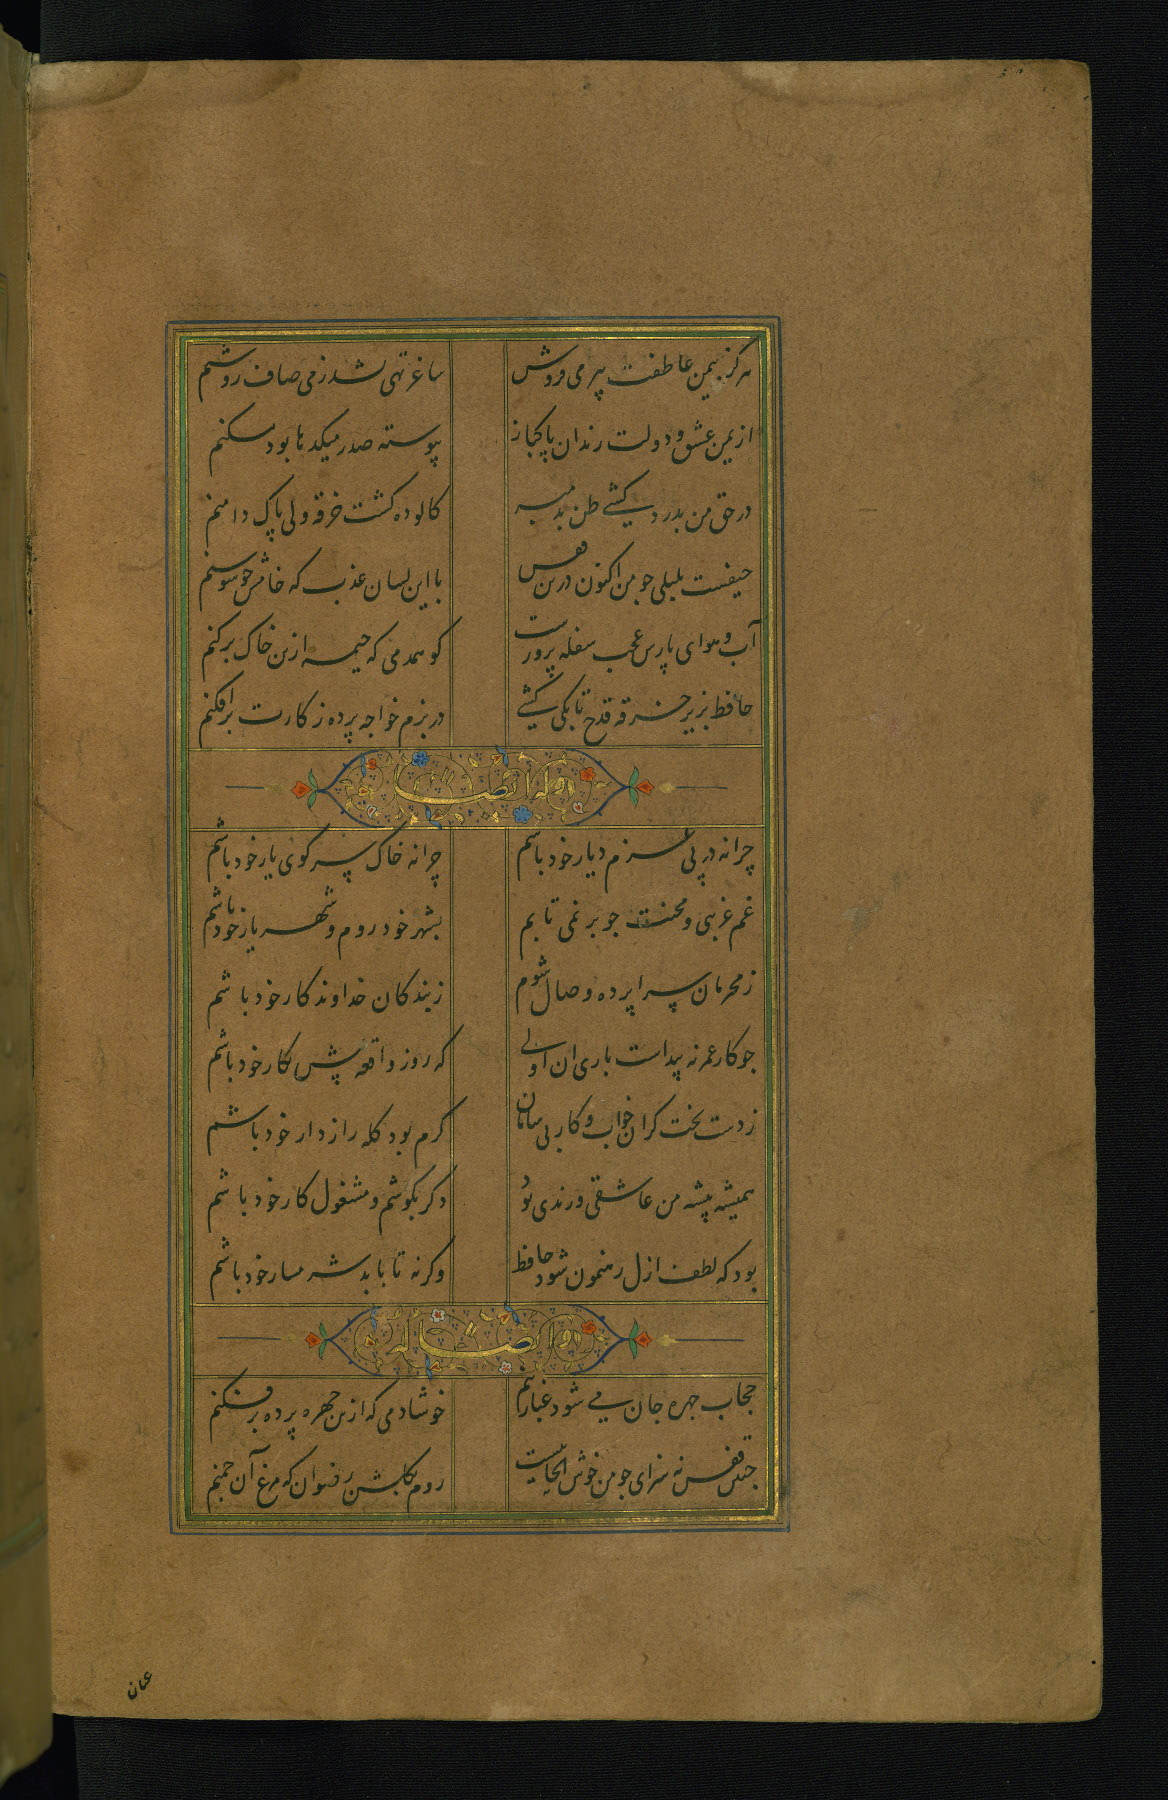 هرکز بیمن عاطفت پیر می فروش ساغر تهی نشد ز می صاف روشنم
از یمن عشق و دولت رندان پاکباز پیوسته صدر میکدها بود مسکنم
در حق من بدرد کشی ظن بد مبر کالوده کشت خرقه ولی پاک دامنم
حیفست بلبلی جو من اکنون درین قفس با این لسان عذب که خامش جو سوسنم
آب و هوای پارس عجب سفله پرورست کو همدمی که خیمه ازین خاک برکنم
حافظ بزیر خرقه قدح تا بکی کشی در بزم خواجه پرده ز کارت برافکنم
چرا نه در پی عزم دیار خود باشم چرا نه خاک سر کوی یار خود باشم
غم غریبی و محنت جو بر نمی تابم بشهر خود روم و شهریار خود باشم
ز محرمان سراپرده وصال شوم ز بندکان خداوندکار خود باشم
جو کار عمر نه پیداست باری ان اولی که روز واقعه پیش نکار خود باشم
ز دست بخت کران خواب و کار بی سامان کرم بود کله رازدار خود باشم
همیشه پیشه من عاشقی و رندی بود دکر بکوشم و مشغول کار خود باشم
بود که لطف ازل رهنمون شود حافظ وکرنه تا بابد شرمسار خود باشم
حجاب جهره جان می شود غبار تنم خوشا دمی که ازین جهره پرده بر فکنم
جنین قفس نه سزای جو من خوش الحانیست روم بکلشن رضوان که مرغ آن جمنم